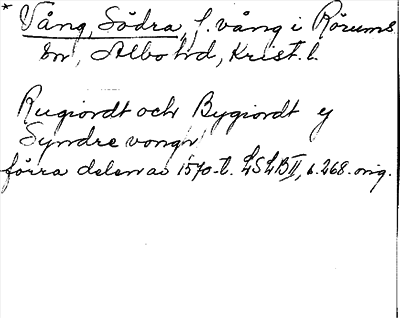 * Vång, Södra, f. vång i Rörums
sn, Albo hd, Krist. l.
Rugiordt och Bygiordt y
Syndre vongh
förra delen av 1570-t. LSLB II, s. 268. orig.